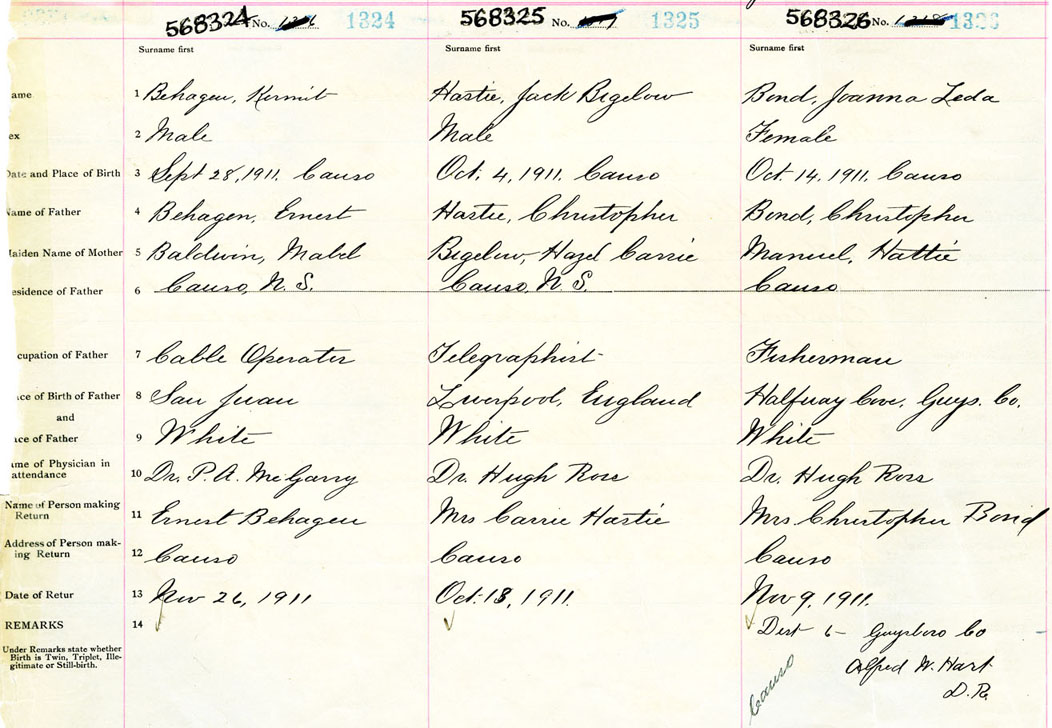 568324 No. 1324 568325 No. 1325 568326 No. 1326
Surname first Surname first Surname first
ame 1 Behagen, Kermit Hastie, Jack Bigelow Bond, Joanna Leda
ex 2 Male Male Female
Date and Place of Birth 3 Sept 28, 1911. Canso Oct. 4, 1911. Canso Oct. 14. 1911. Canso
Name of Father 4 Behagen, Ernest Hastie, Christopher Bond, Christopher
Maiden Name of Mother 5 Baldwin, Mabel Bigelow, Hazel Carrie Manuel, Hattie
esidence of Father 6 Canso, N. S. Canso, N. S. Canso
cupation of Father 7 Cable Operator Telegraphist Fisherman
ace of Birth of Father 8 San Juan Liverpool, England Halfway Cove, Guys. Co.
and
ace of Father 9 White White White
ame of Physician in
attendance 10 Dr. P. A. McGarry Dr. Hugh Ross Dr. Hugh Ross
Name of Person making
Return 11 Ernest Behagen Mrs Carrie Hastie Mrs Christopher Bond
Address of Person mak-
ing Return 12 Canso Canso Canso
Date of Retur 13 Nov 26, 1911 Oct. 13, 1911. Nov 9, 1911.
REMARKS 14
Dist 6 - Guysboro Co
Under Remarks state whether
Birth is Twin, Triplet, Ille-
gitimate or Still-birth.
Alfred W. Hart
D. R.
Canso